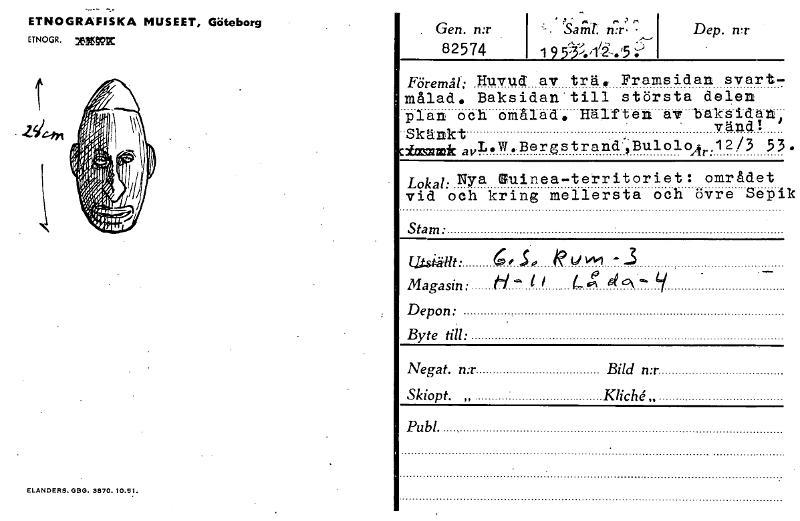 ETNOGRAFISKA MUSEET, Göteborg
ETNOGR.
28 cm
ELANDERS. GBG. 3870. 10.51.
Gen. n:r Saml. n:r Dep. n:r
82574 1953.12.5.
Föremål: Huvud av trä. Framsidan svart-
målad. Baksidan till största delen
plan och omålad. Hälften av baksidan,
Skänkt vänd!
av L.W.Bergstrand,Bulolo, År: 12/3 53.
Lokal: Nya Guinea-territoriet: området
vid och kring mellersta och övre Sepik
Stam:
Utställt: G.S. Rum-3
Magasin: H-11 Låda-4
Depon:
Byte till:
Negat. n:r Bild n:r
Skiopt. „ Kliché „
Publ.